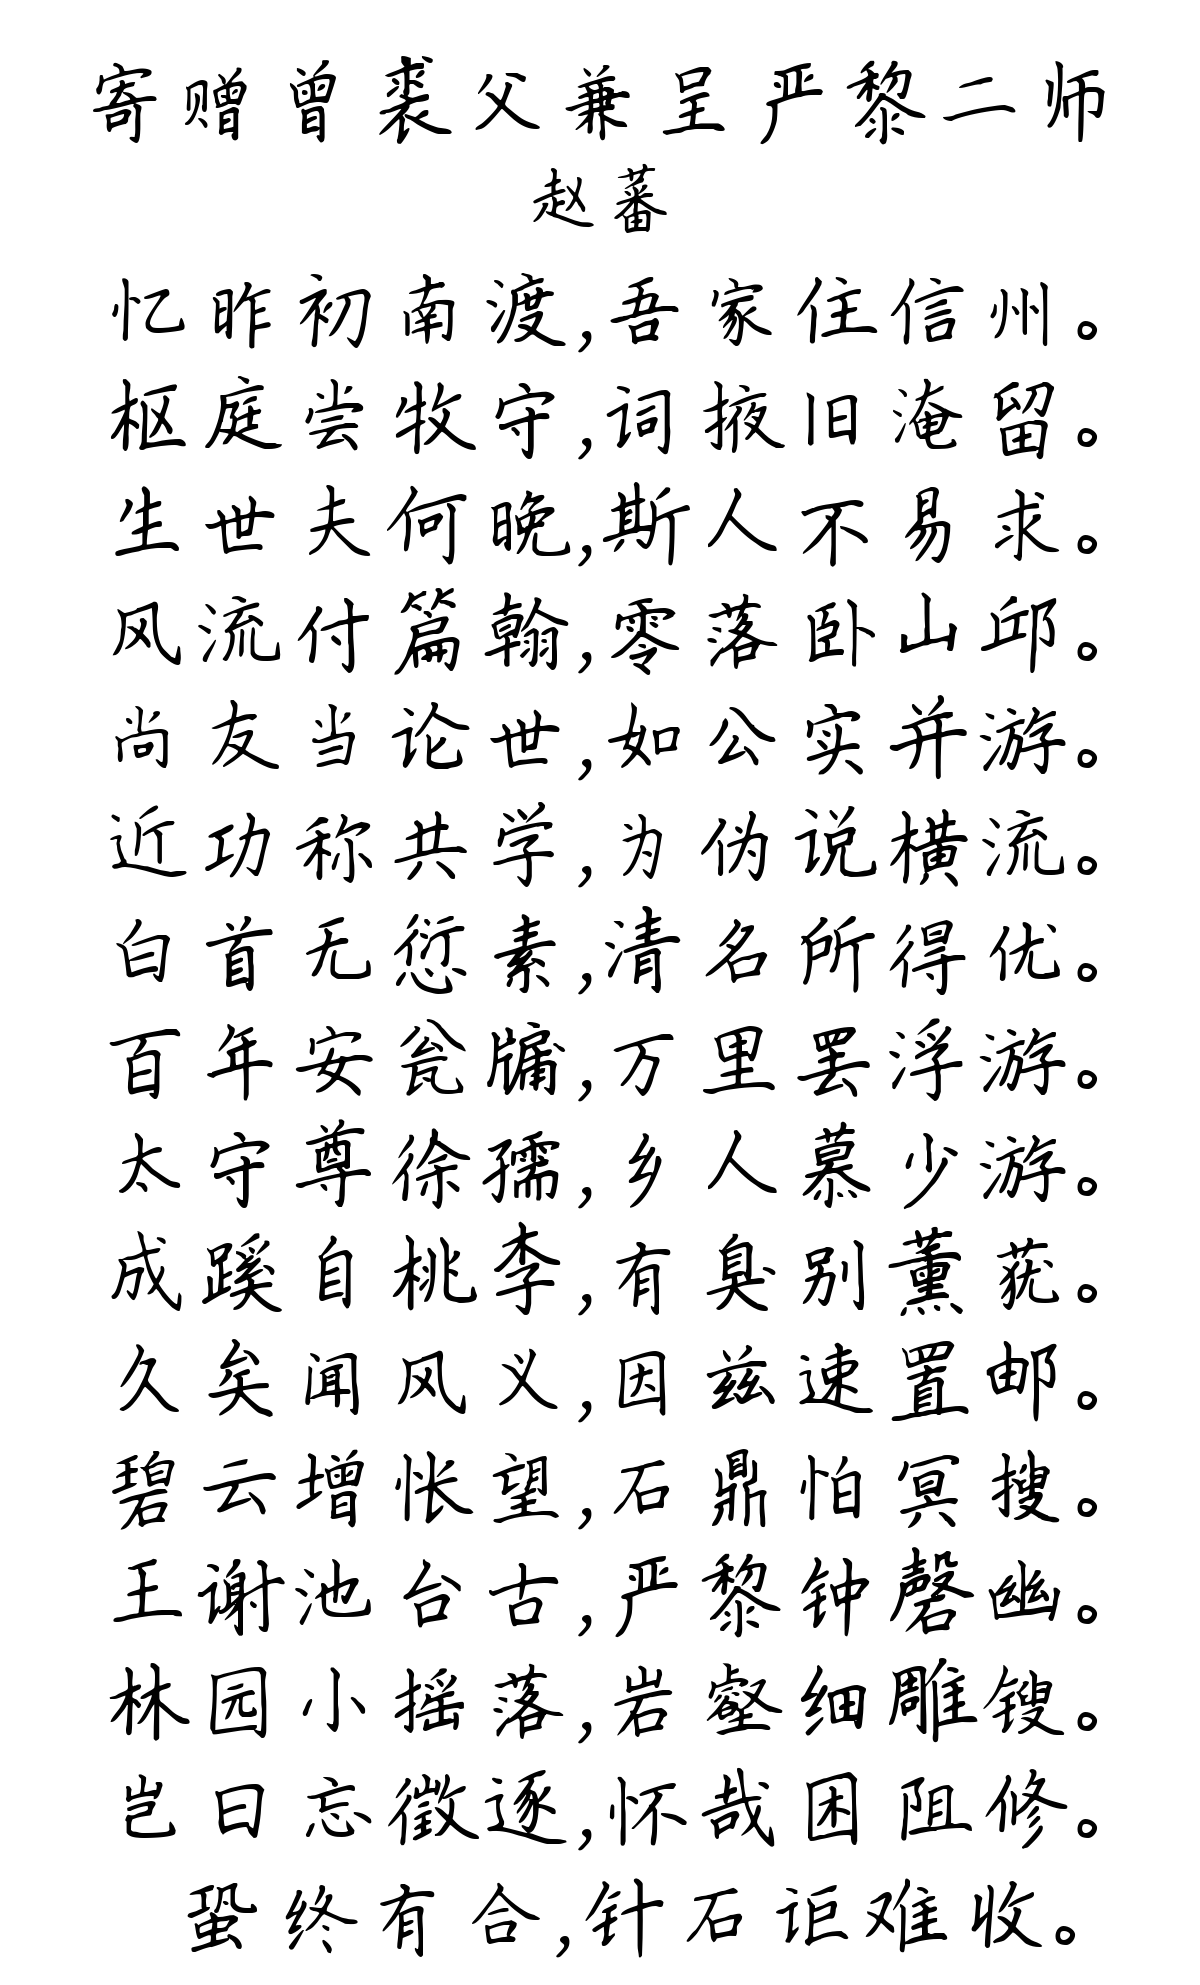 寄赠曾裘父兼呈严黎二师
赵蕃
忆昨初南渡,吾家住信州。
枢庭尝牧守,词掖旧淹留。
生世夫何晚,斯人不易求。
风流付篇翰,零落卧山邱。
尚友当论世,如公实并游。
近功称共学,为伪说横流。
白首无愆素,清名所得优。
百年安瓮牖,万里罢浮游。
太守尊徐孺,乡人慕少游。
成蹊自桃李,有臭别薰莸。
久矣闻风义,因兹速置邮。
碧云增怅望,石鼎怕冥搜。
王谢池台古,严黎钟磬幽。
林园小摇落,岩壑细雕锼。
岂曰忘徵逐,怀哉困阻修。
蛩终有合,针石讵难收。